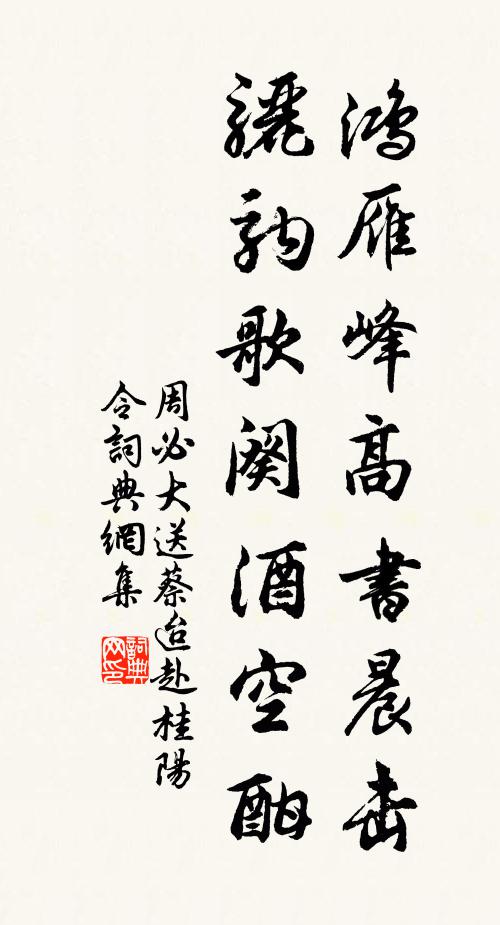 鴻雁峰高書晨
驪駒歌闋酒空酣
周必大送蔡迨赴桂陽
令詞典網集
詞典
網印